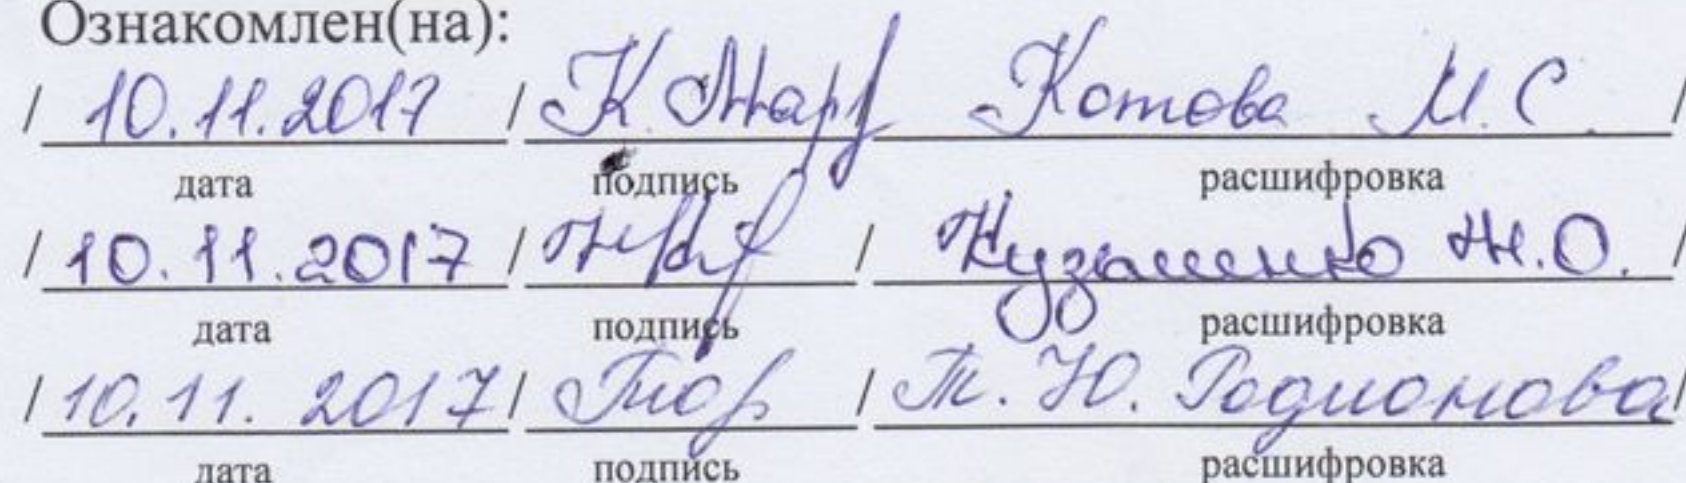 Ознакомлен(на):
/ 10.11.2017 / К. Мар / Котова М.С. /
дата подпись расшифровка
/ 10.11.2017 / / Кузьменко Н.О. /
дата подпись расшифровка
/ 10.11.2017 / Тюр / Т. Ю. Родионова /
дата подпись расшифровка